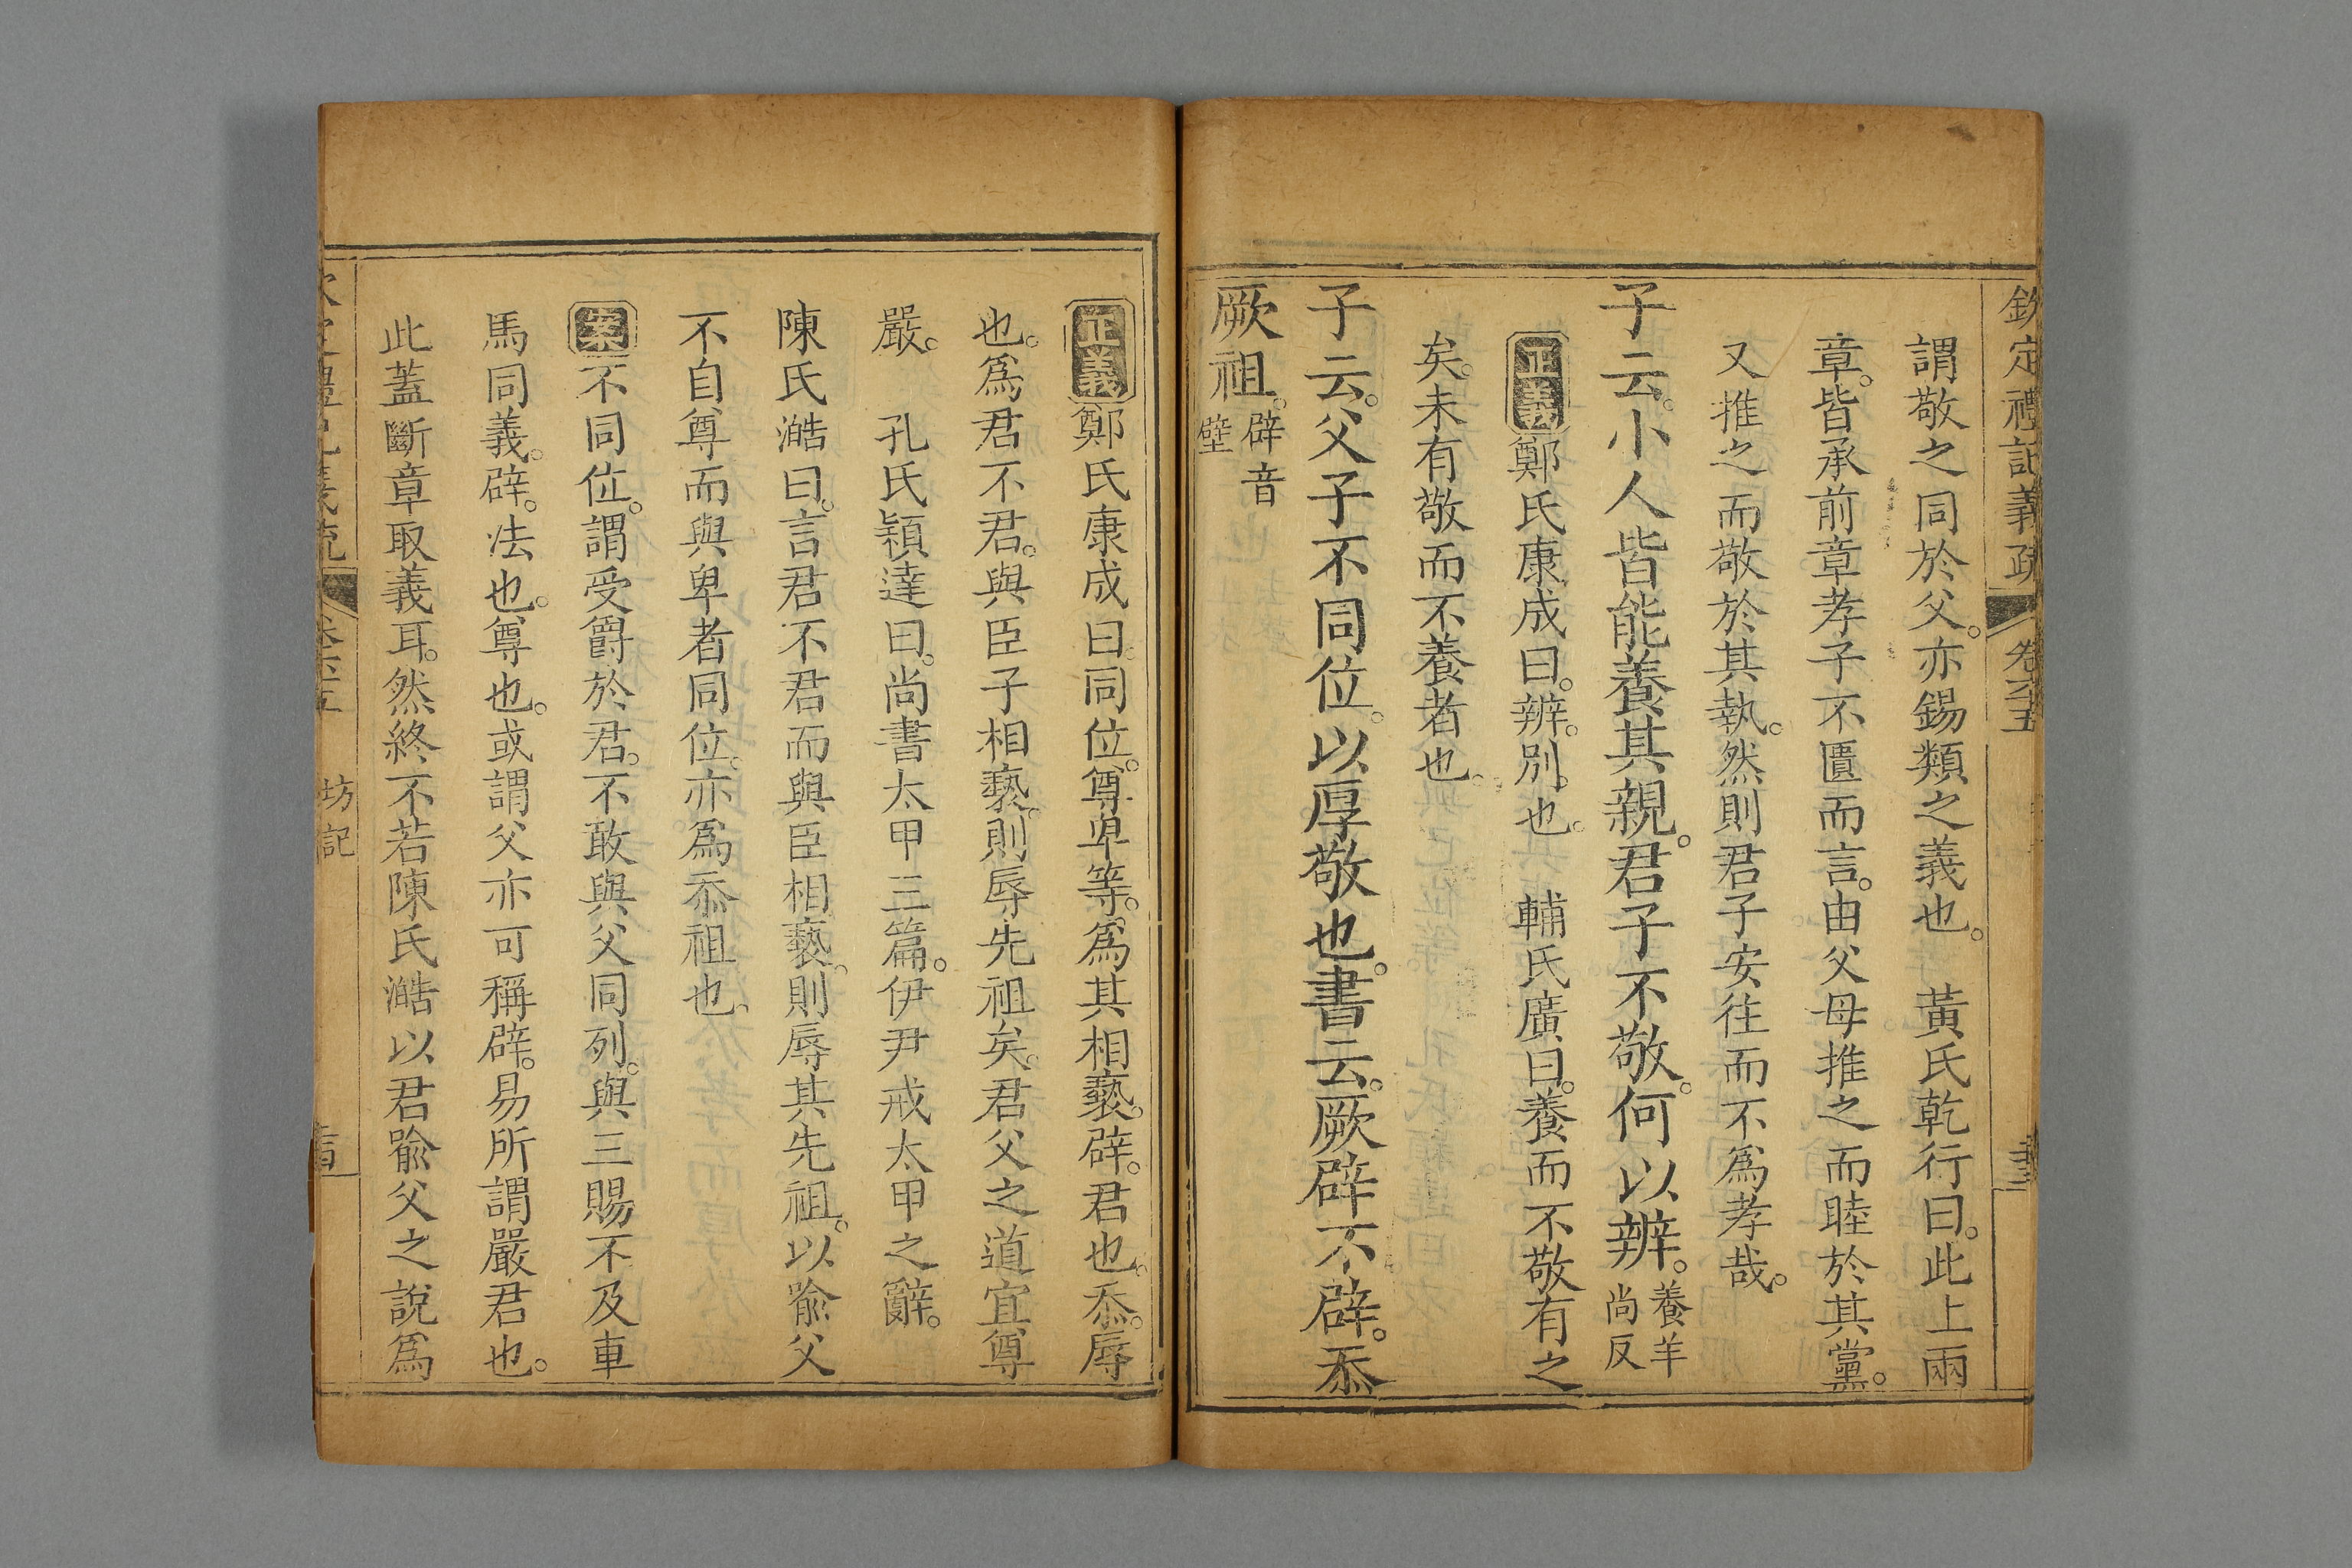 欽定禮記義疏 卷六十五
謂敬之同於父。亦錫類之義也。 黃氏乾行曰。此上兩
章。皆承前章孝子不匱而言。由父母推之而睦於其黨。
又推之而敬於其執。然則君子安往而不爲孝哉。
子云。小人皆能養其親。君子不敬。何以辨。養羊尚反
正義鄭氏康成曰。辨。別也。 輔氏廣曰。養而不敬有之
矣。未有敬而不養者也。
子云。父子不同位。以厚敬也。書云。厥辟不辟。忝
厥祖。辟音壁
正義鄭氏康成曰。同位。尊卑等。爲其相褻。辟。君也。忝。辱
也。爲君不君。與臣子相褻。則辱先祖矣。君父之道宜尊
嚴。 孔氏穎達曰。尚書太甲三篇。伊尹戒太甲之辭。
陳氏澔曰。言君不君而與臣相褻。則辱其先祖。以喩父
不自尊而與卑者同位。亦爲忝祖也。
案不同位。謂受爵於君。不敢與父同列。與三賜不及車
馬同義。辟。法也。尊也。或謂父亦可稱辟。易所謂嚴君也。
此蓋斷章取義耳。然終不若陳氏澔以君喩父之說爲
坊記